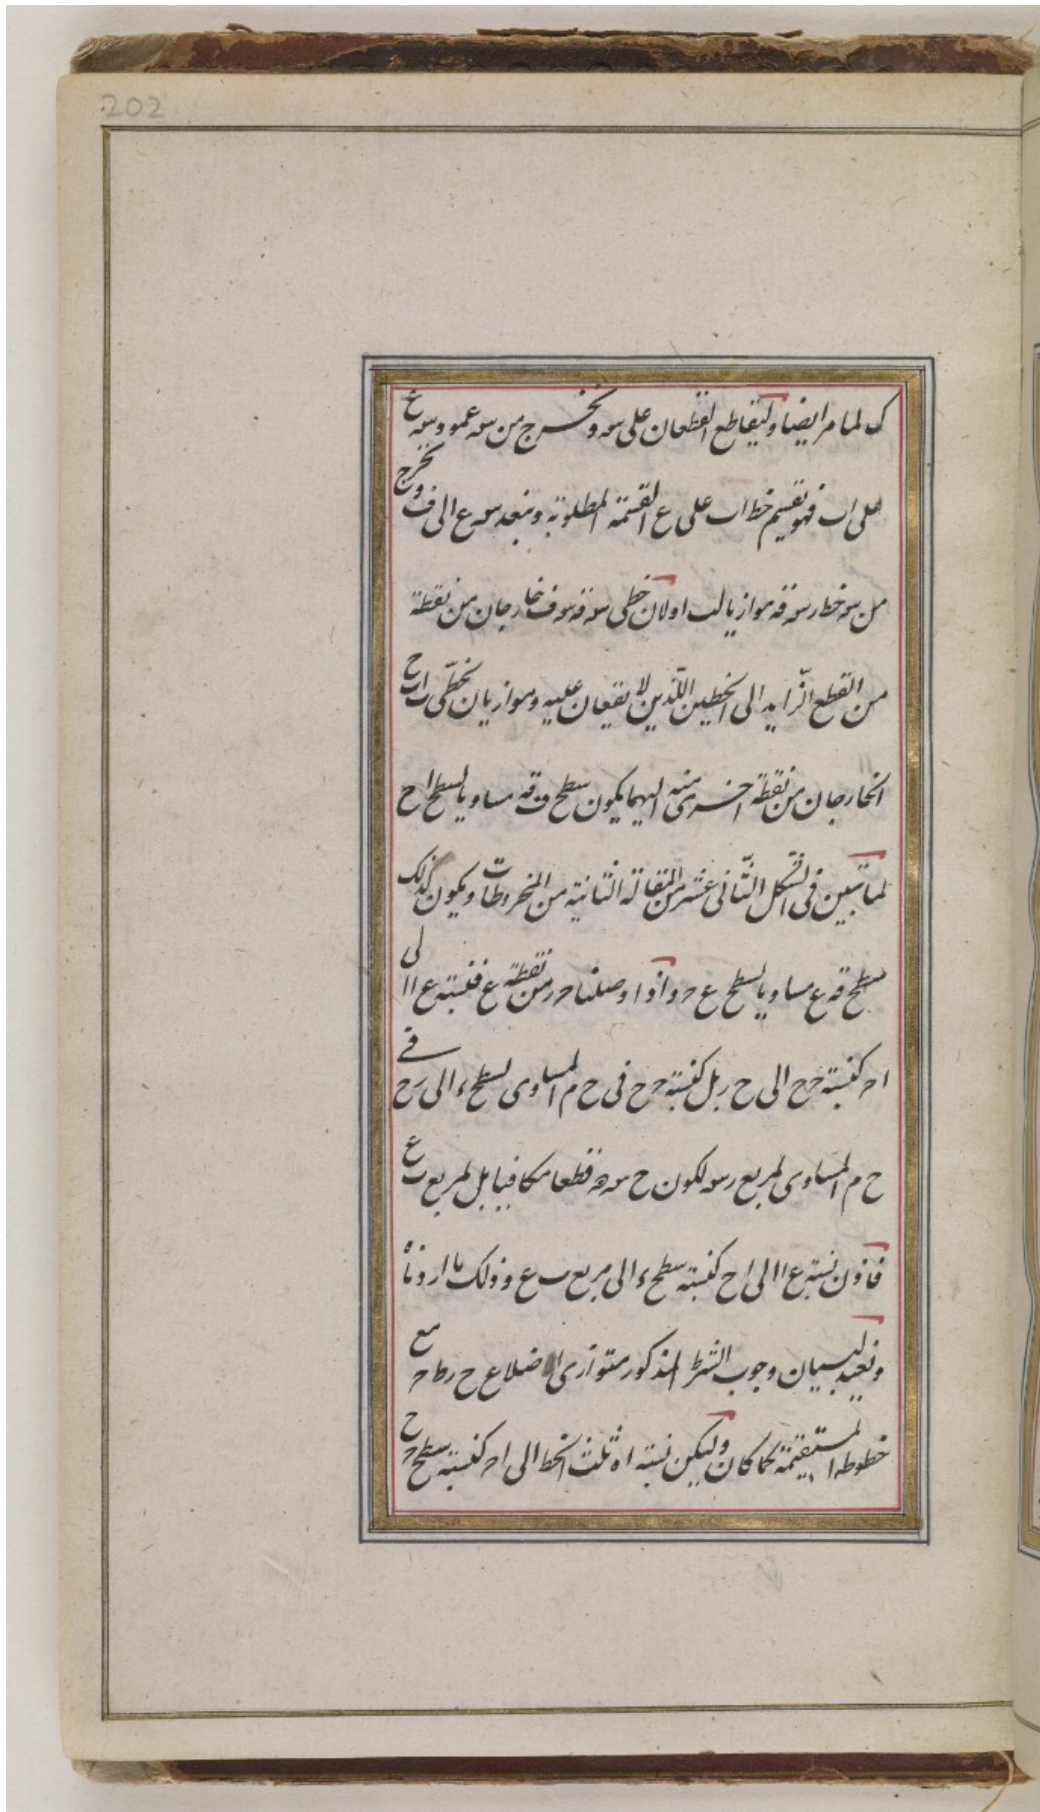 202
ک لما مر ایضا ولیتقاطع القطعان علی سه و نخرج من سه عمود سه ع
علی اب فهو نقسیم خط اب علی ع القسمة المطلوبة و ننفد سه ع الی ف و نخرج
من سه خط رسه قه موازیا لب اولان خطی سه قه سه ف خارجان من نقطة
من القطع الزاید الی الخطین اللذین لا یقعان علیه و موازیان لخطی ب اح
الخارجان من نقطة اخری منه الیهما یکون سطح ف قه مساویا لسطح اح
لما تبین فی الشکل الثانی عشر من المقالة الثانیة من المخروطات و یکون کذلک
سطح قه ع مساویا لسطح ع ح و اذا وصلنا حر من نقطة ع فنسبة ع ا الی
اح کنسبة حح الی ح ربل کنسبة حح فی ح م المساوی لسطح ء الی رح فی
ح م المساوی لمربع رسه لکون ح سه ه قطعا مکافیا بل لمربع ب ع
فاذن نسبة ع ا الی اح کنسبة سطح ء الی مربع ب ع و ذلک ما اردناه
و نعید لبیان وجوب الشرط المذکور متوازی الاضلاع ح رط ح مع
خطوطه المستقیمة کما کان ولیکن نسبة اه ثلث الخط الی اح کنسبة سطح ح ح